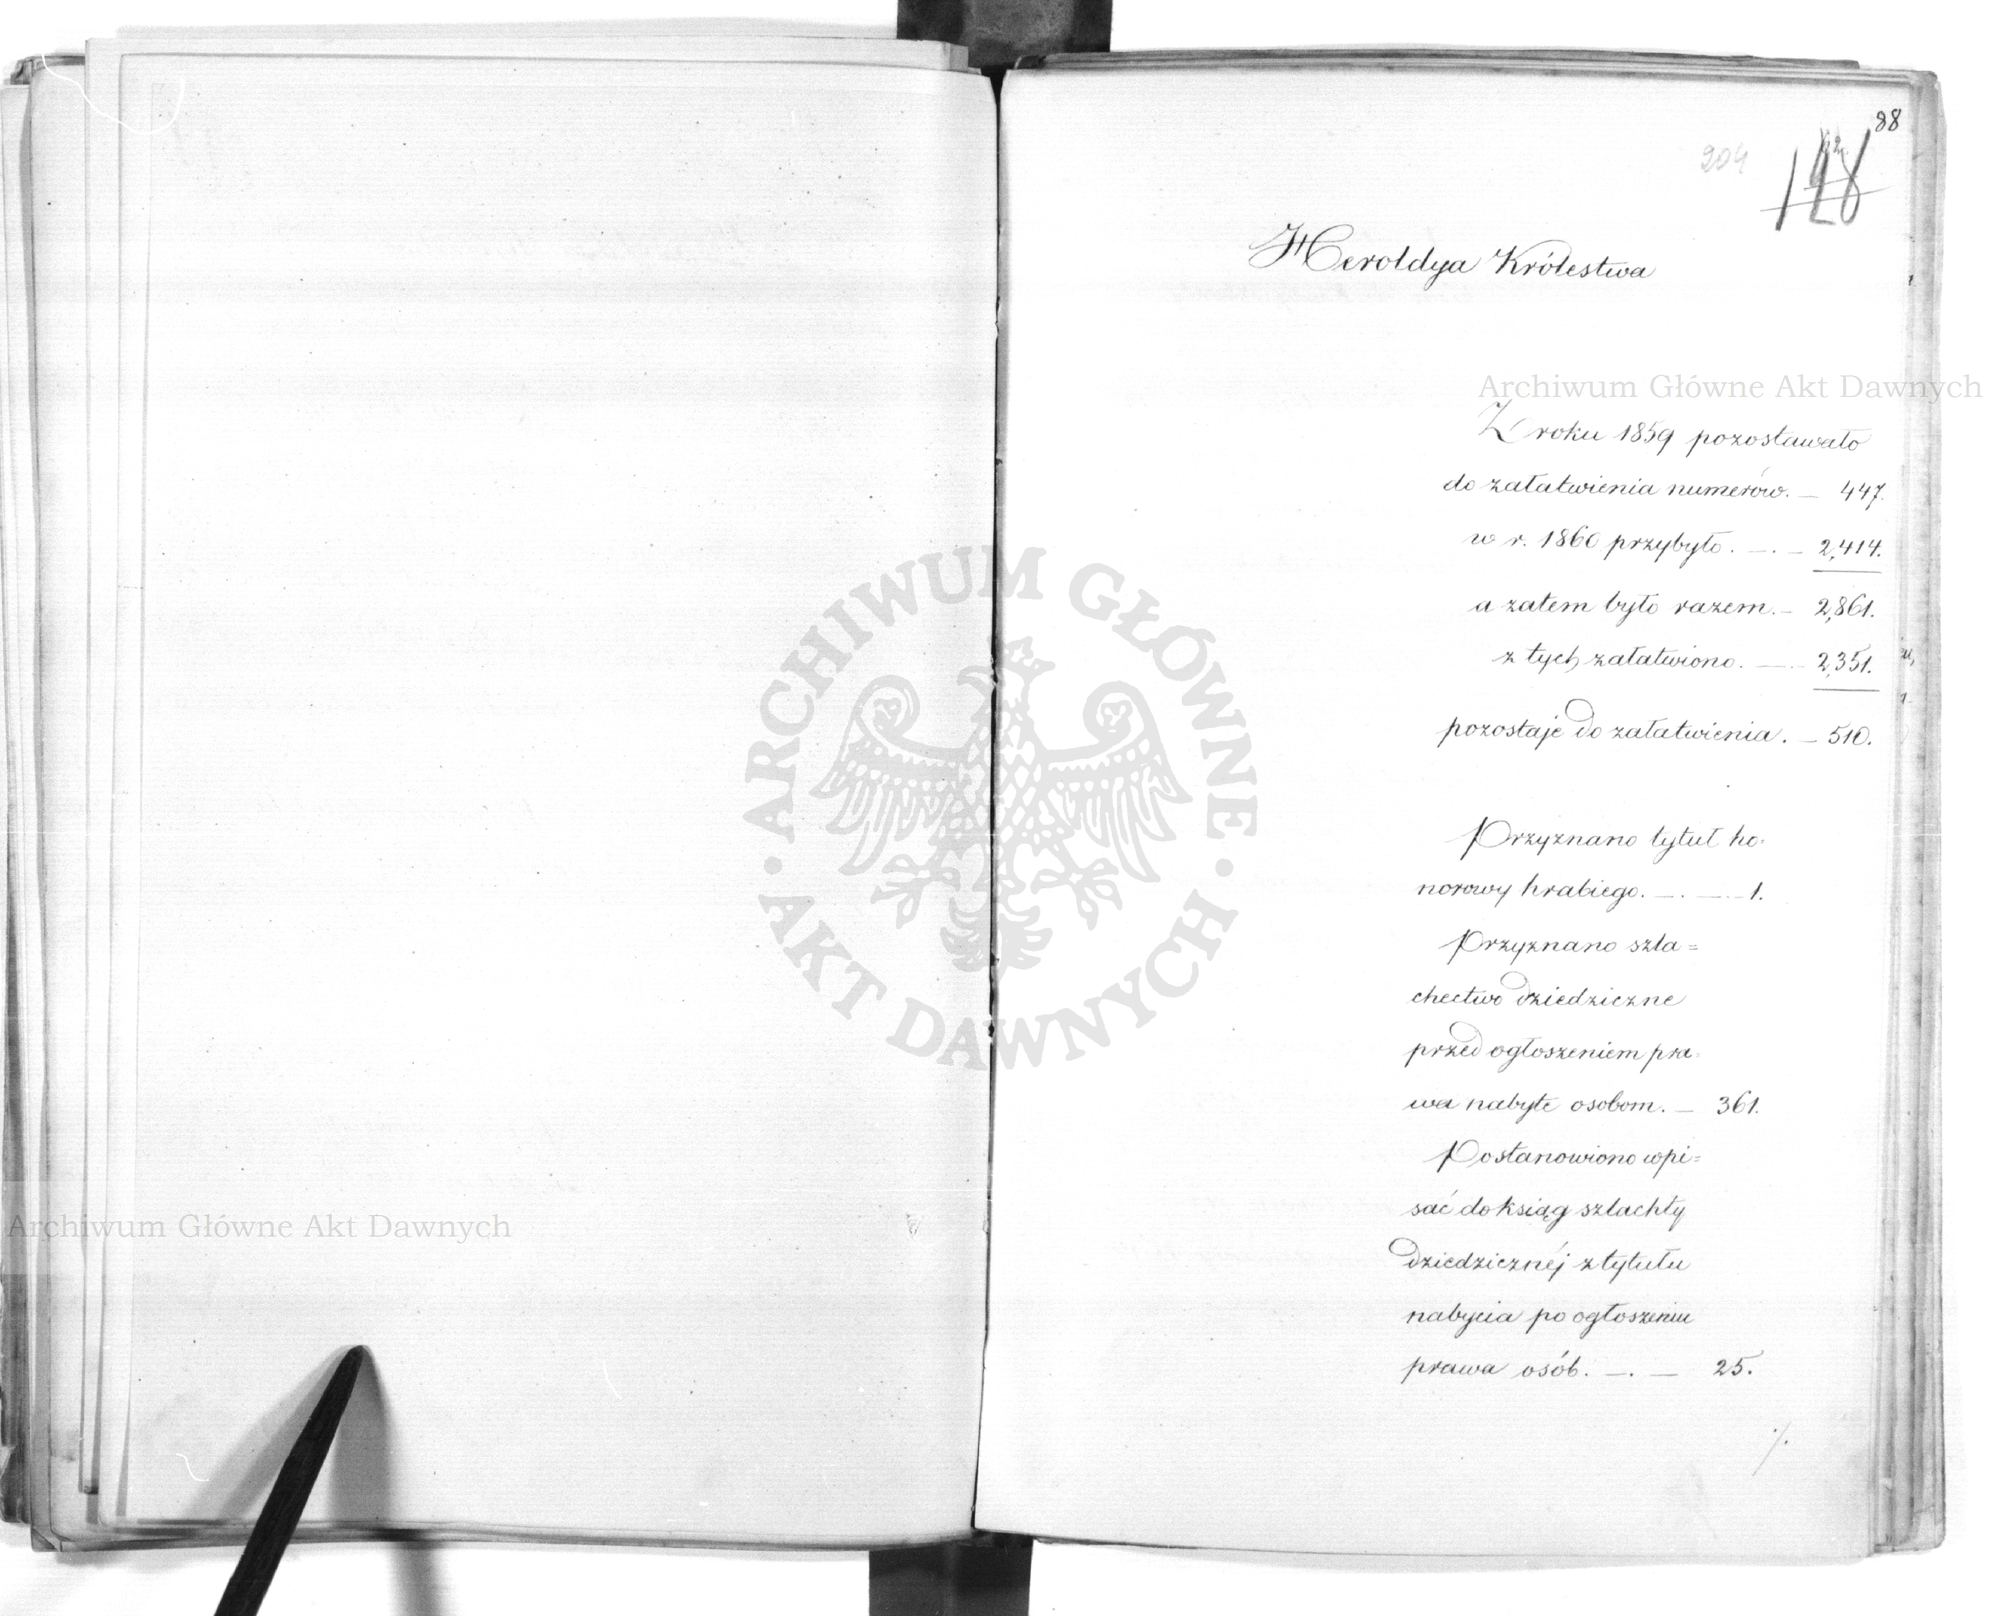 88
204
128
Heroldya Królestwa
Archiwum Główne Akt Dawnych
Z roku 1859 pozostawało
do załatwienia numerów. — 447.
w r. 1860 przybyło. —.— 2,414.
a zatem było razem. — 2,861.
z tych załatwiono. —— 2,351.
pozostaje do załatwienia. — 510.
Przyznano tytuł ho-
norowy hrabiego. —.—.— 1.
Przyznano szla=
chectwo dziedziczne
przed ogłoszeniem pra-
wa nabyte osobom. — 361.
Postanowiono wpi=
sać do ksiąg szlachty
dziedzicznéj z tytułu
nabycia po ogłoszeniu
prawa osób. —.— 25.
./.
ARCHIWUM GŁÓWNE
AKT DAWNYCH
Archiwum Główne Akt Dawnych